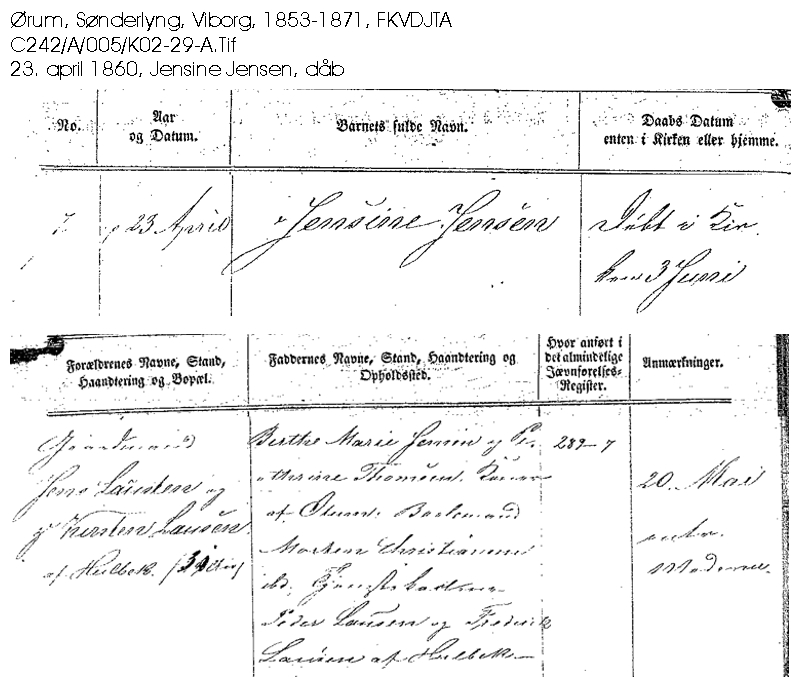 Ørum, Sønderlyng, Viborg, 1853-1871, FKVDJTA
C242/A/005/K02-29-A.Tif
23. april 1860, Jensine Jensen, dåb
No.
Aar
og Datum.
Barnets fulde Navn.
Daabs Datum
enten i Kirken eller hjemme.
7.
23 April
Jensine Jensen
Døbt i Kir
ken 3 Juni
Forældrenes Navne, Stand,
Haandtering og Bopæl.
Faddernes Navne, Stand, Haandtering og
Opholdssted.
Hvor anført i
det almindelige
Jævnførelses-
Register.
Anmærkninger.
Gaardmand
Jens Lausten og
Kirsten Lausen
af Hulbek.
Berthe Marie Jensen og
Thomsen.
af Ørum. Boelsmand
Morten Christiansen
ibd.
Peder Lausen og Frederik
Lausen af Hulbek
289-7
20. Mai
Moderen.